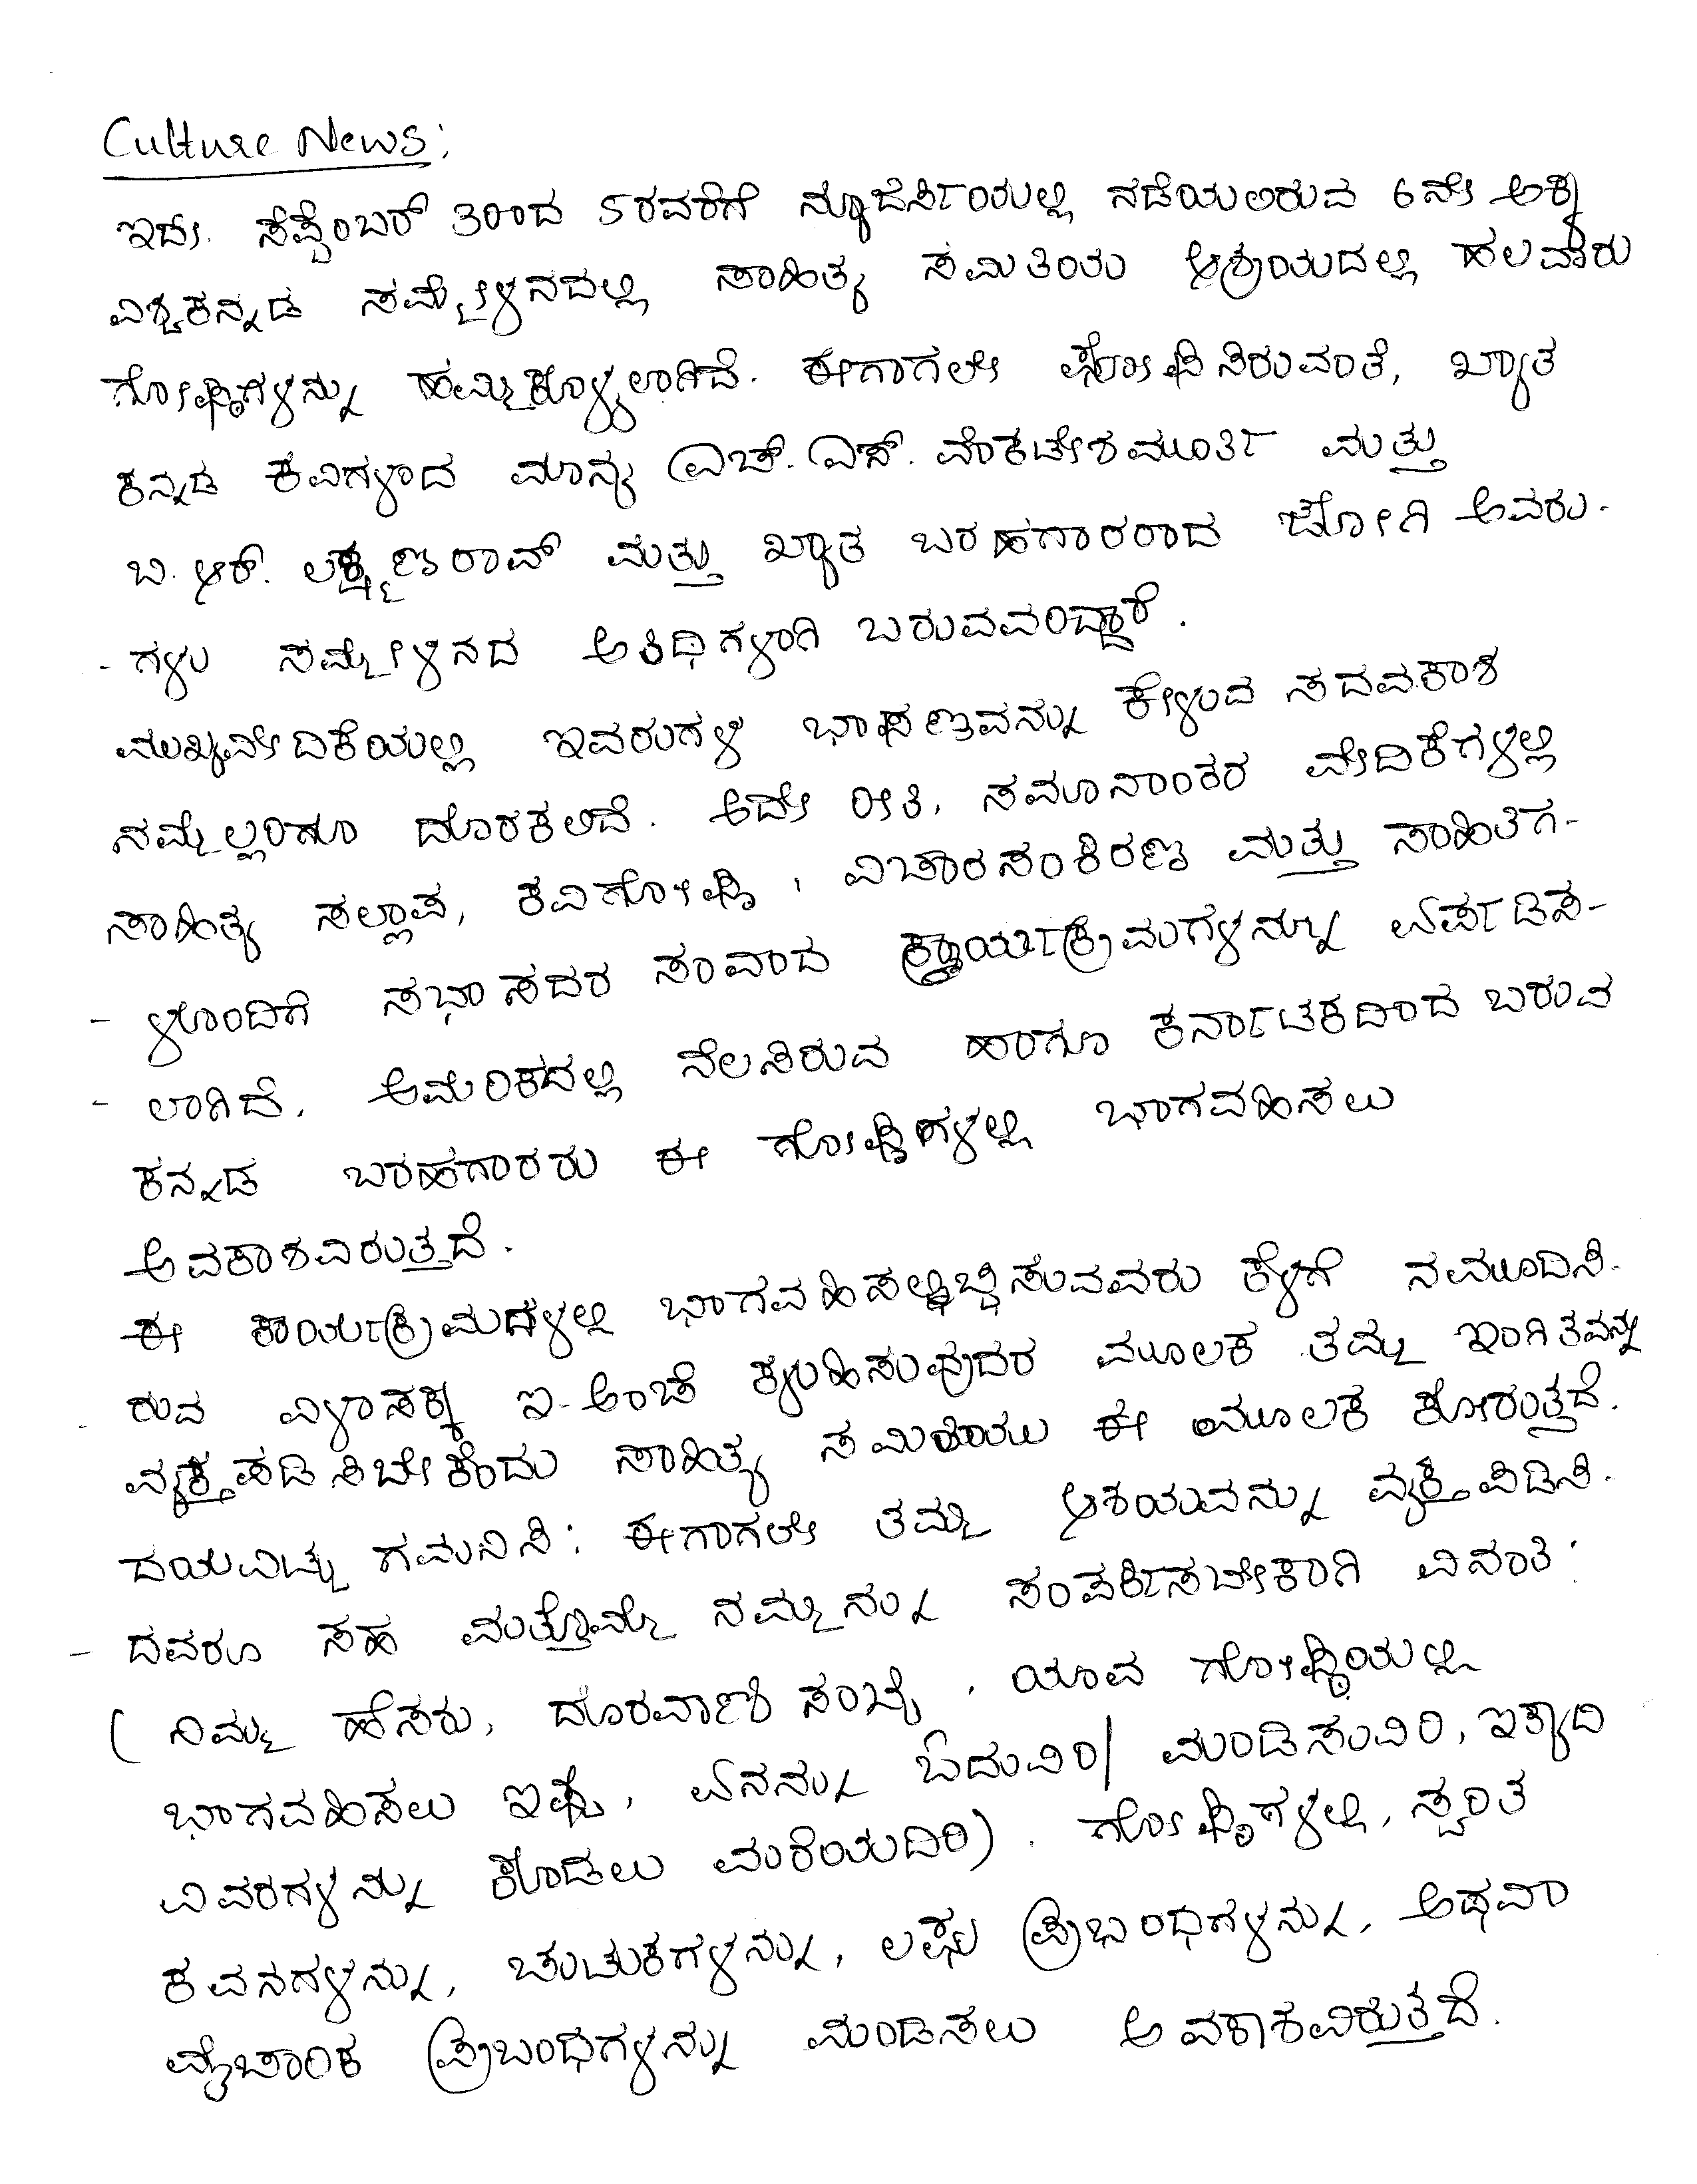 Culture News:
ಇದೇ ಸೆಪ್ಟೆಂಬರ್ 30ಂದ 5ರವರೆಗೆ ನ್ಯೂಜೆರ್ಸಿಯಲ್ಲಿ ನಡೆಯಲಿರುವ 6ನೇ ಅಕ್ಕ
ವಿಶ್ವಕನ್ನಡ ಸಮ್ಮೇಳನದಲ್ಲಿ ಸಾಹಿತ್ಯ ಸಮಿತಿಯ ಆಶ್ರಯದಲ್ಲಿ ಹಲವಾರು
ಗೋಷ್ಠಿಗಳನ್ನು ಹಮ್ಮಿಕೊಳ್ಳಲಾಗಿದೆ. ಈಗಾಗಲೇ ಘೋಷಿಸಿರುವಂತೆ, ಖ್ಯಾತ
ಕನ್ನಡ ಕವಿಗಳಾದ ಮಾನ್ಯ ಎಚ್. ಎಸ್. ವೆಂಕಟೇಶಮೂರ್ತಿ ಮತ್ತು
ಬಿ. ಆರ್. ಲಕ್ಷ್ಮಣರಾವ್ ಮತ್ತು ಖ್ಯಾತ ಬರಹಗಾರರಾದ ಜೋಗಿ ಅವರು-
-ಗಳು ಸಮ್ಮೇಳನದ ಅತಿಥಿಗಳಾಗಿ ಬರುವವರಿದ್ದಾರೆ.
ಮುಖ್ಯವೇದಿಕೆಯಲ್ಲಿ ಇವರುಗಳ ಭಾಷಣವನ್ನು ಕೇಳುವ ಸದವಕಾಶ
ನಮ್ಮೆಲ್ಲರಿಗೂ ದೊರಕಲಿದೆ. ಅದೇ ರೀತಿ, ಸಮಾನಾಂತರ ವೇದಿಕೆಗಳಲ್ಲಿ
ಸಾಹಿತ್ಯ ಸಲ್ಲಾಪ, ಕವಿಗೋಷ್ಠಿ, ವಿಚಾರಸಂಕಿರಣ ಮತ್ತು ಸಾಹಿತಿಗ-
- ಳೊಂದಿಗೆ ಸಭಾಸದರ ಸಂವಾದ ಕಾರ್ಯಕ್ರಮಗಳನ್ನೂ ಏರ್ಪಡಿಸ-
- ಲಾಗಿದೆ. ಅಮೆರಿಕದಲ್ಲಿ ನೆಲಸಿರುವ ಹಾಗೂ ಕರ್ನಾಟಕದಿಂದ ಬರುವ
ಕನ್ನಡ ಬರಹಗಾರರು ಈ ಗೋಷ್ಠಿಗಳಲ್ಲಿ ಭಾಗವಹಿಸಲು
ಅವಕಾಶವಿರುತ್ತದೆ.
ಈ ಕಾರ್ಯಕ್ರಮಗಳಲ್ಲಿ ಭಾಗವಹಿಸಲಿಚ್ಛಿಸುವವರು ಕೆಳಗೆ ನಮೂದಿಸಿ-
- ರುವ ವಿಳಾಸಕ್ಕೆ ಇ-ಅಂಚೆ ಕಳುಹಿಸುವುದರ ಮೂಲಕ ತಮ್ಮ ಇಂಗಿತವನ್ನು
ವ್ಯಕ್ತಪಡಿಸಬೇಕೆಂದು ಸಾಹಿತ್ಯ ಸಮಿತಿಯು ಈ ಮೂಲಕ ಕೋರುತ್ತದೆ.
ದಯವಿಟ್ಟು ಗಮನಿಸಿ: ಈಗಾಗಲೇ ತಮ್ಮ ಆಶಯವನ್ನು ವ್ಯಕ್ತಪಡಿಸಿ-
- ದವರೂ ಸಹ ಮತ್ತೊಮ್ಮೆ ನಮ್ಮನ್ನು ಸಂಪರ್ಕಿಸಬೇಕಾಗಿ ವಿನಂತಿ:
( ನಿಮ್ಮ ಹೆಸರು, ದೂರವಾಣಿ ಸಂಖ್ಯೆ, ಯಾವ ಗೋಷ್ಠಿಯಲ್ಲಿ
ಭಾಗವಹಿಸಲು ಇಷ್ಟ, ಏನನ್ನು ಓದುವಿರಿ/ ಮಂಡಿಸುವಿರಿ, ಇತ್ಯಾದಿ
ವಿವರಗಳನ್ನು ಕೊಡಲು ಮರೆಯದಿರಿ). ಗೋಷ್ಠಿಗಳಲ್ಲಿ, ಸ್ವರಚಿತ
ಕವನಗಳನ್ನು, ಚುಟುಕಗಳನ್ನು, ಲಘು ಪ್ರಬಂಧಗಳನ್ನು, ಅಥವಾ
ವೈಚಾರಿಕ ಪ್ರಬಂಧಗಳನ್ನು ಮಂಡಿಸಲು ಅವಕಾಶವಿರುತ್ತದೆ.